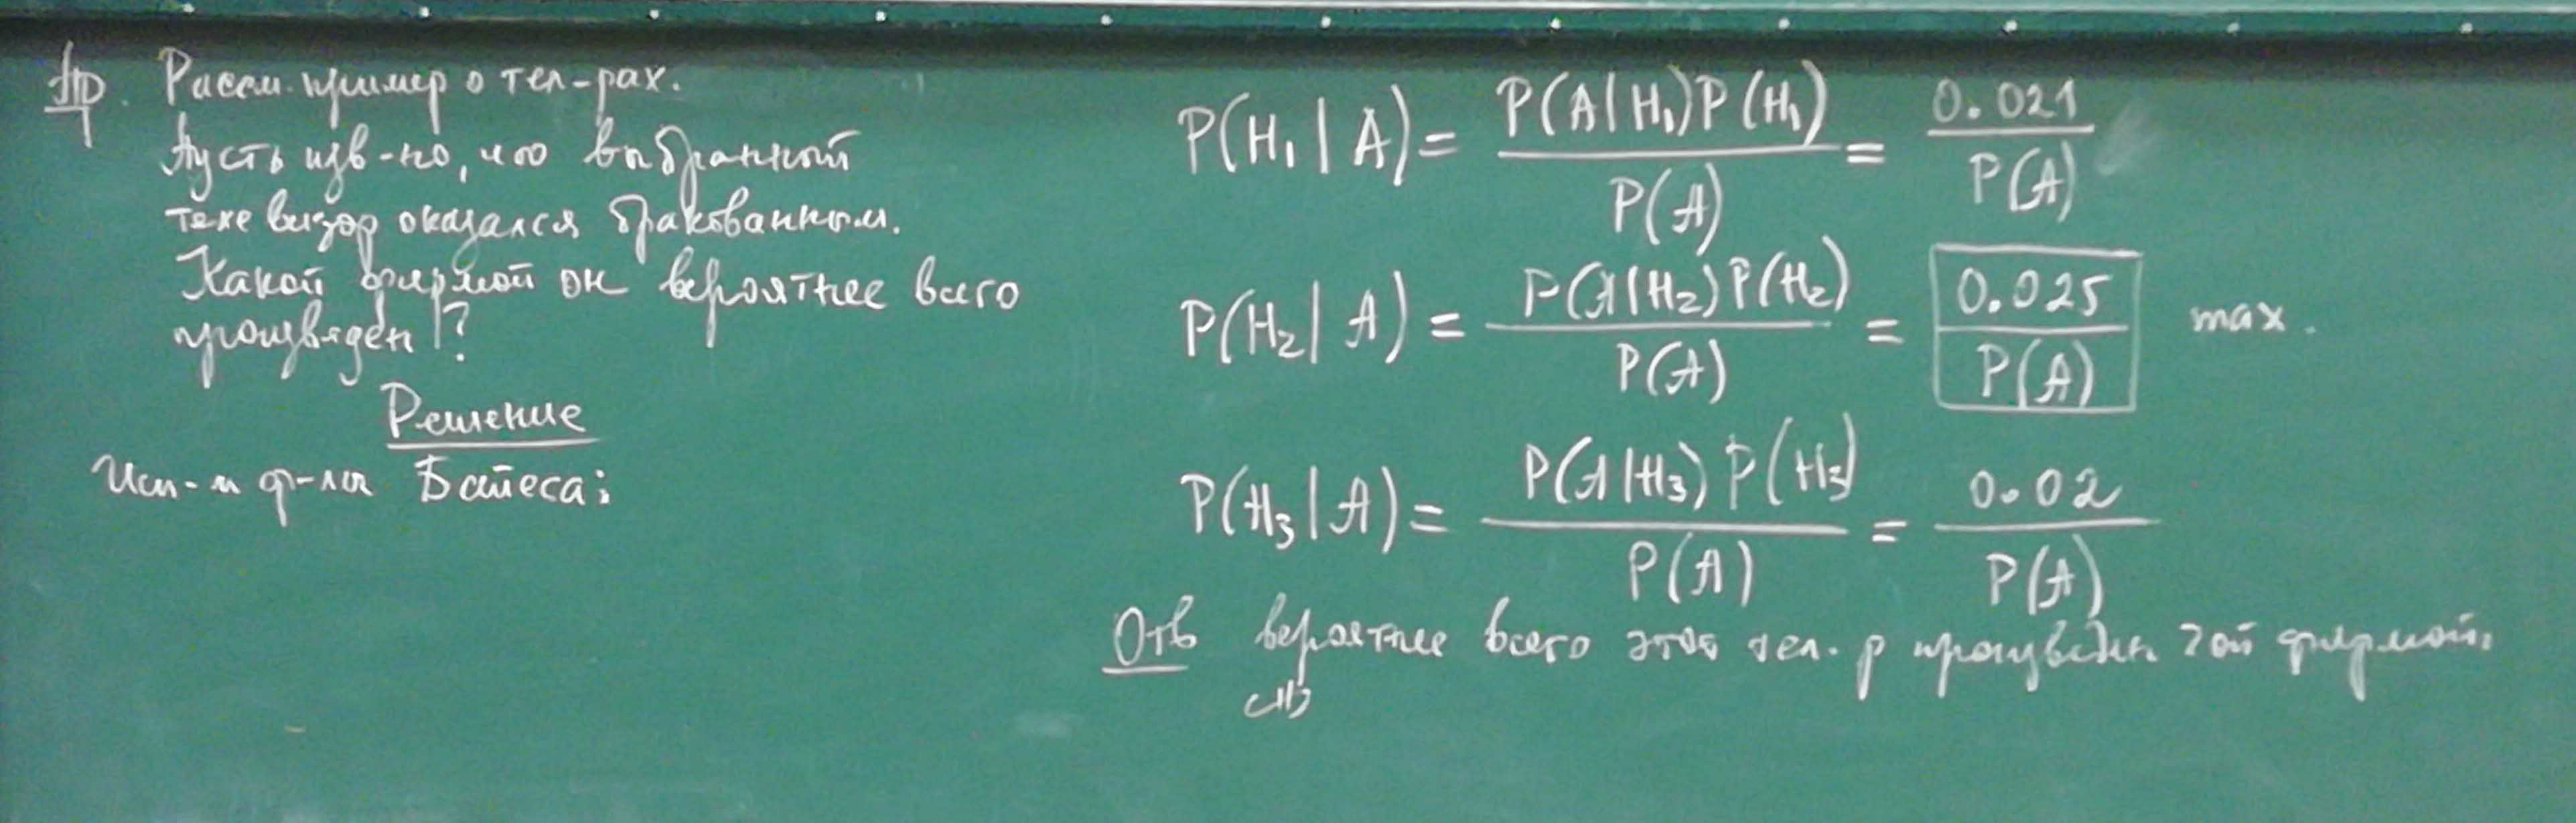 Пр. Рассм. пример о тел-рах.
Пусть изв-но, что выбранный
телевизор оказался бракованным.
Какой фирмой он вероятнее всего
произведен?
Решение
Исп-м ф-лы Байеса:
P(H₁ | A) = P(A|H₁)P(H₁) / P(A) = 0.021 / P(A)
P(H₂ | A) = P(A|H₂)P(H₂) / P(A) = 0.025 / P(A) max.
P(H₃ | A) = P(A|H₃)P(H₃) / P(A) = 0.02 / P(A)
Отв вероятнее всего этот тел.р произведен 2ой фирмой.